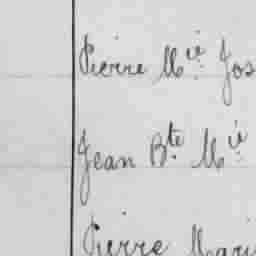 Pierre M^ie. Jos
Jean B^te. M^ie
Pierre Mari